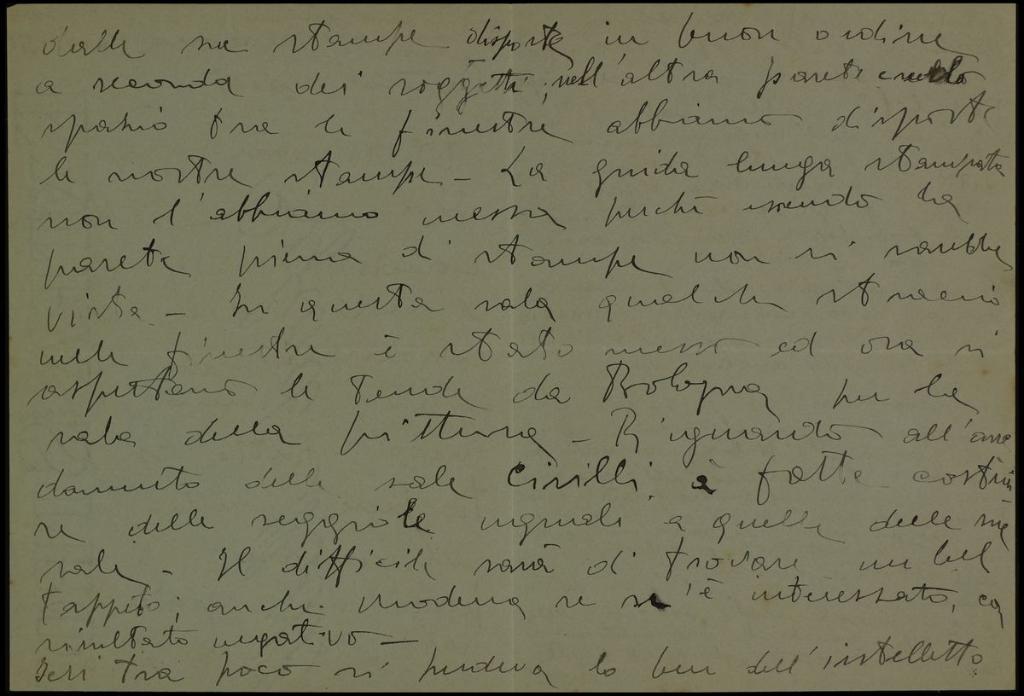 dalle sue stampe disposte in buon ordine
a seconda dei soggetti; nell'altra parete e nello
spazio tra le finestre abbiamo disposte
le nostre stampe - La guida lunga stampata
non l'abbiamo messa perchè essendo la
parete piena di stampe non si sarebbe
vista - In questa sala qualche straccio
nelle finestre è stato messo ed ora si
aspettano le tende da Bologna per la
sala della pittura - Riguardo all'arre
damento delle sale Civilli, à fatto costrui
re delle seggiole uguali a quelle delle sue
sale - Il difficile sarà di trovare un bel
tappeto; anche Modena se n'è interessato, con
risultato negativo -
Ieri tra poco si perdeva lo ben dell'intelletto